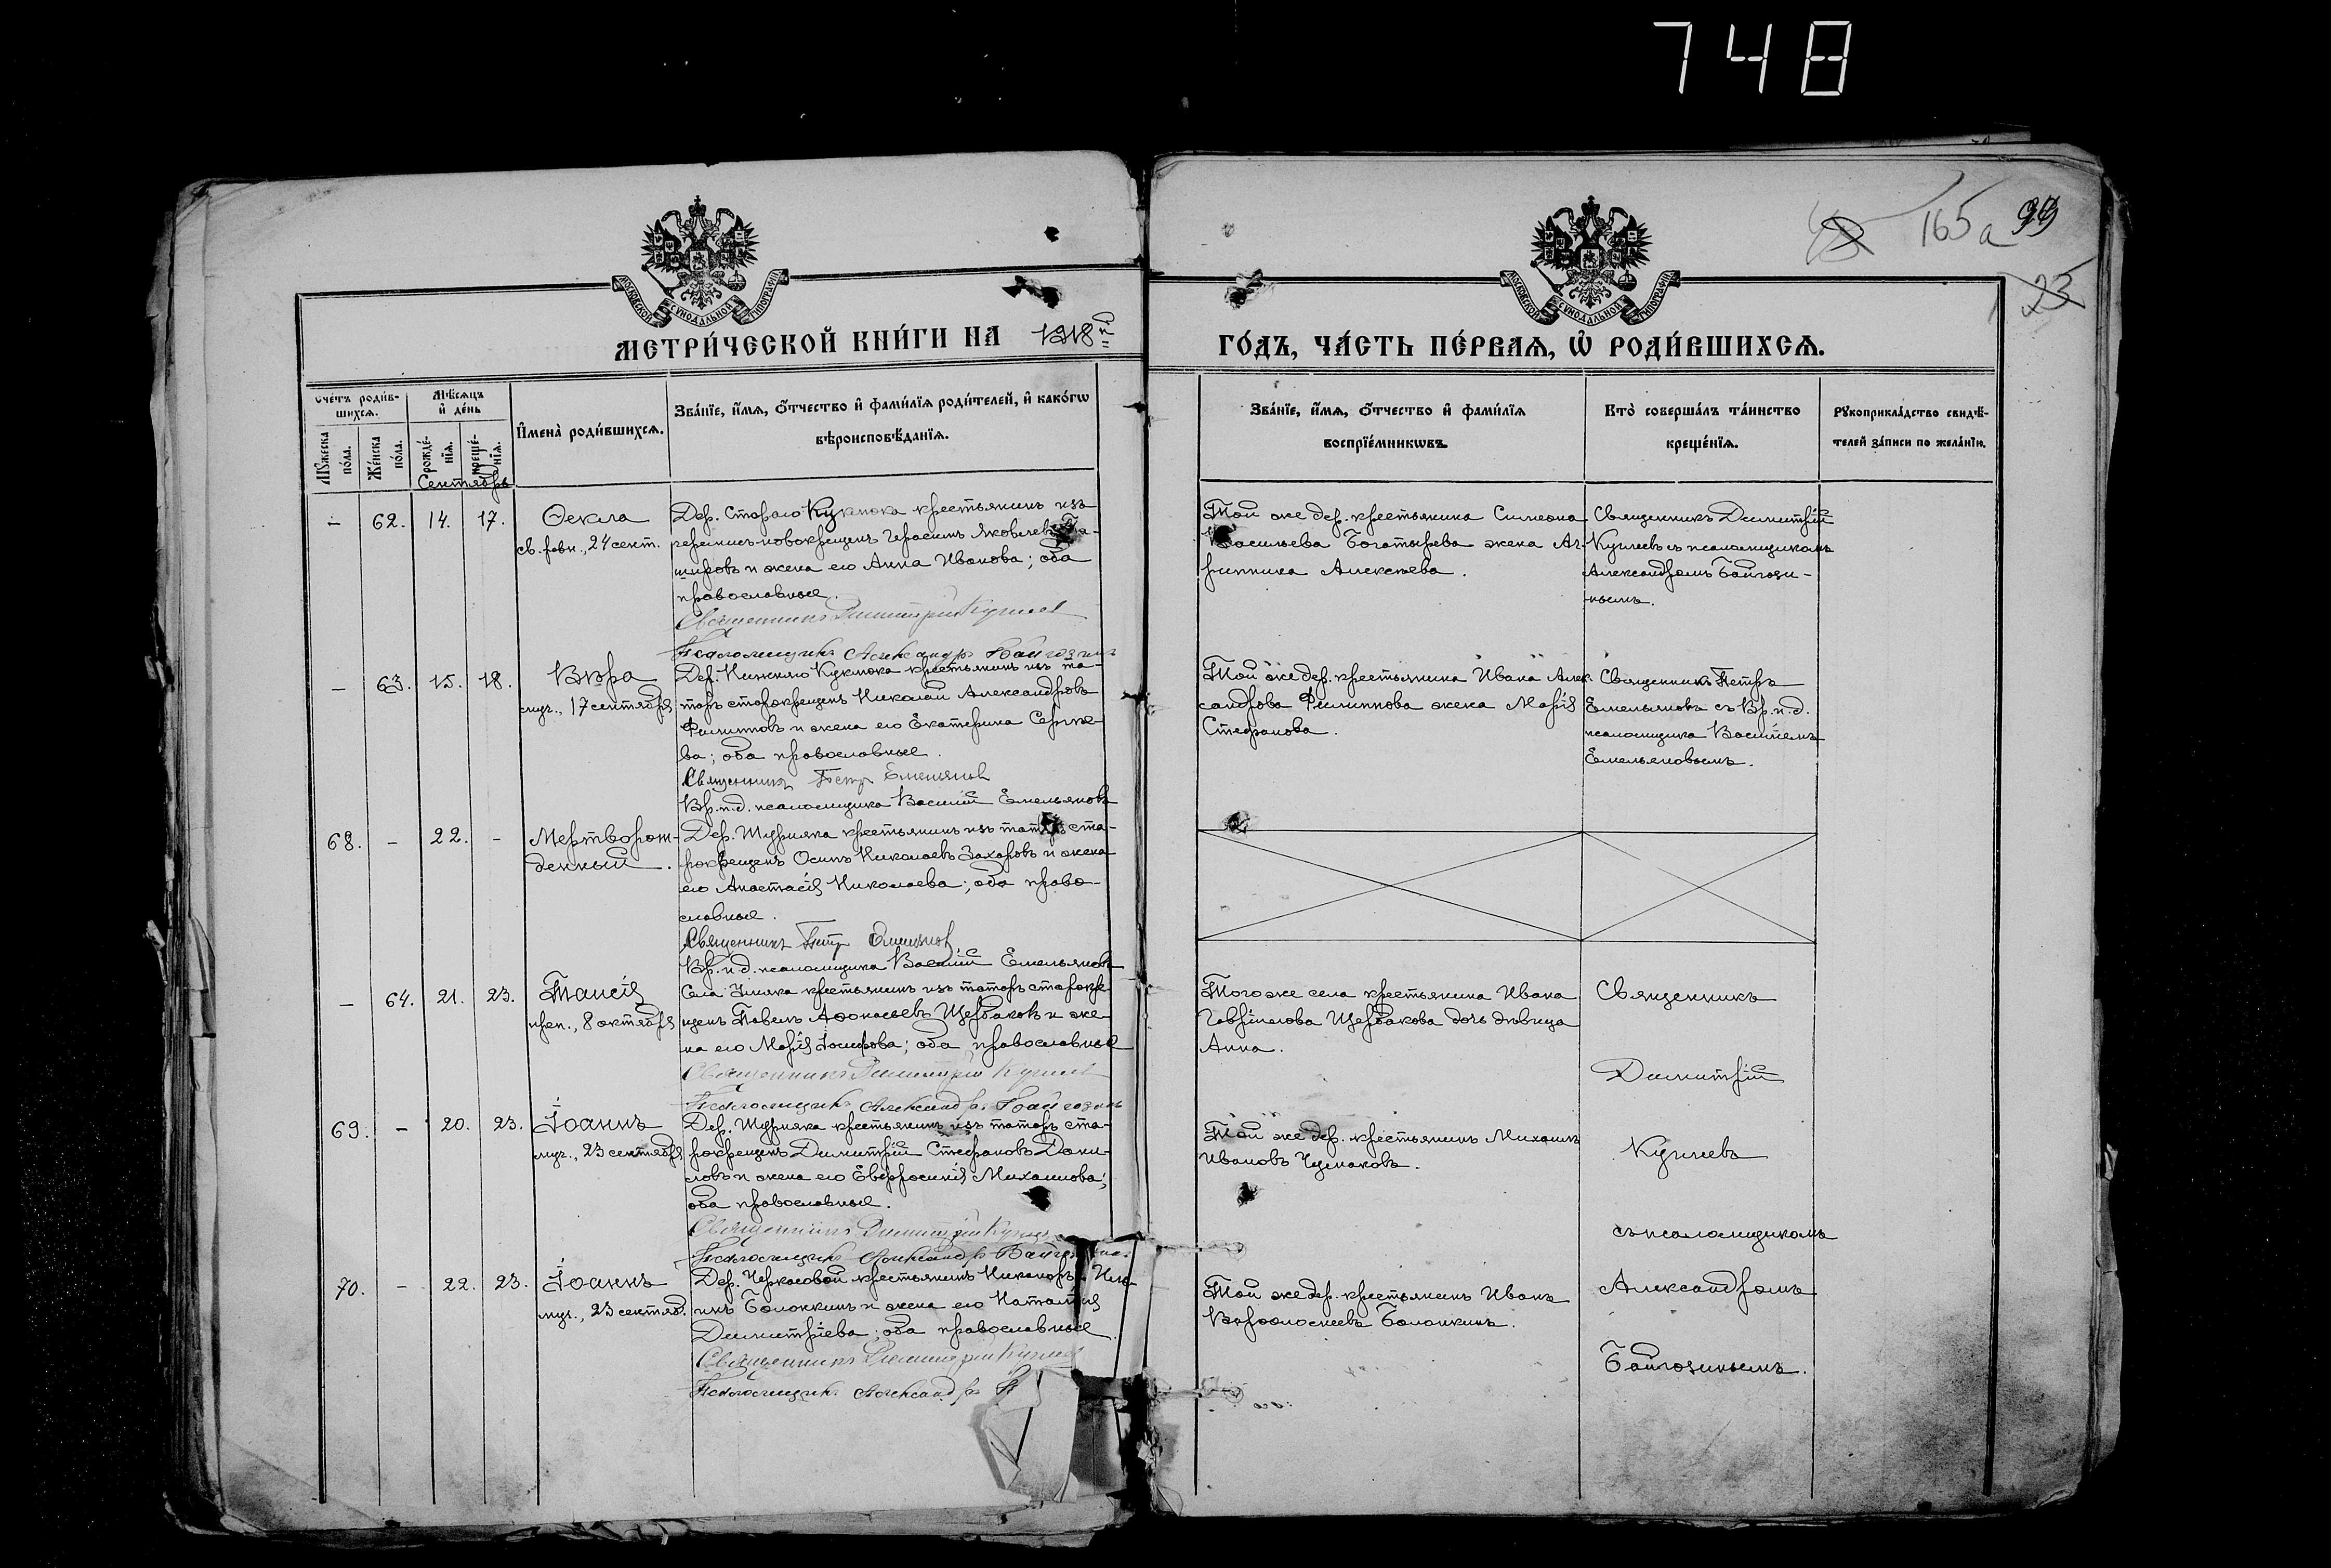 748
165 а
99
23
МОСКОВСКОЙ СѴНОДАЛЬНОЙ ТИПОГРАФІИ
МОСКОВСКОЙ СѴНОДАЛЬНОЙ ТИПОГРАФІИ
МЕТРИ́ЧЕСКОЙ КНИ́ГИ НА 1918й
ГО́ДЪ, ЧА́СТЬ ПЕ́РВАѦ, Ѡ҆ РОДИ́ВШИХСѦ.
Сче́тъ роди́в-
шихсѧ.
Мꙋ́жеска по́ла.
Же́нска по́ла.
Мѣ́сѧцъ и҆ де́нь
рожде́-
нїѧ.
креще́-
нїѧ.
И҆мена̀ роди́вшихсѧ.
Зва́нїе, и҆́мѧ, ѻ҆́тчество и҆ фами́лїѧ роди́телей, и҆ како́гѡ
вѣроисповѣ́данїѧ.
Зва́нїе, и҆́мѧ, ѻ҆́тчество и҆ фами́лїѧ
воспрїе́мникѡвъ.
Кто̀ соверша́лъ та́инство
креще́нїѧ.
Рꙋкоприкла́дство свидѣ́-
телей за́писи по жела́нїю.
Сентябрь
– 62. 14. 17.
Ѳекла
св. равн., 24 сент.
Дер. Стараго Кукмока крестьянинъ изъ
черемисъ-новокрещенъ Герасимъ Яковлевъ
шировъ и жена его Анна Иванова; оба
православные.
Священникъ Димитрій Кузнев
Псаломщикъ Александръ Байгозинъ
Той же дер. крестьянина Симеона
Васильева Богатырева жена Аг-
риппина Алексѣева.
Священникъ Димитрій
съ псаломщикомъ
Александромъ Байгози-
нымъ.
– 63. 15. 18.
Вѣра
муч., 17 сентября
Дер. Нижняго Кукмока крестьянинъ изъ та-
таръ старокрещенъ Николай Александровъ
Филипповъ и жена его Екатерина Сергѣе-
ва; оба православные.
Священникъ Петр Емельянов
Вр. и. д. псаломщика Василій Емельяновъ
Той же дер. крестьянина Ивана Алек-
сандрова Филиппова жена Марія
Стефанова.
Священникъ Петръ
Емельяновъ съ Вр. и. д.
псаломщика Василіемъ
Емельяновымъ.
68. – 22. –
Мертворож-
денный.
Дер. Шурняка крестьянинъ изъ татаръ ста-
рокрещенъ Осипъ Николаевъ Захаровъ и жена
его Анастасія Николаева; оба право-
славные.
Священникъ Петр Емельянов
Вр. и. д. псаломщика Василій Емельяновъ
– 64. 21. 23.
Таисія
преп., 8 октября
Села Уняка крестьянинъ изъ татаръ старокре-
щенъ Павелъ Аѳонасьевъ Щербаковъ и же-
на его Марія Іосифова; оба православные
Священникъ Димитрій
Псаломщикъ Александръ Байгозинъ
Того же села крестьянина Ивана
Гавріилова Щербакова дочь дѣвица
Анна.
Священникъ
Димитрій
69. – 20. 23.
Іоаннъ
муч., 23 сентября
Дер. Шурняка крестьянинъ изъ татаръ ста-
рокрещенъ Димитрій Стефановъ Дани-
ловъ и жена его Евфросинія Михаилова;
оба православные.
Священникъ Димитрій
Псаломщикъ Александръ
Той же дер. крестьянинъ Михаилъ
Ивановъ Чумаковъ.
съ псаломщикомъ
70. – 22. 23.
Іоаннъ
муч., 23 сентяб.
Дер. Черкасовой крестьянинъ Никаноръ
Болонкинъ и жена его Наталія
Димитріева; оба православные
Священникъ Димитрій
Псаломщикъ Александръ
Той же дер. крестьянинъ Иванъ
Варѳоломеевъ Болонкинъ.
Александромъ
Байгозинымъ.